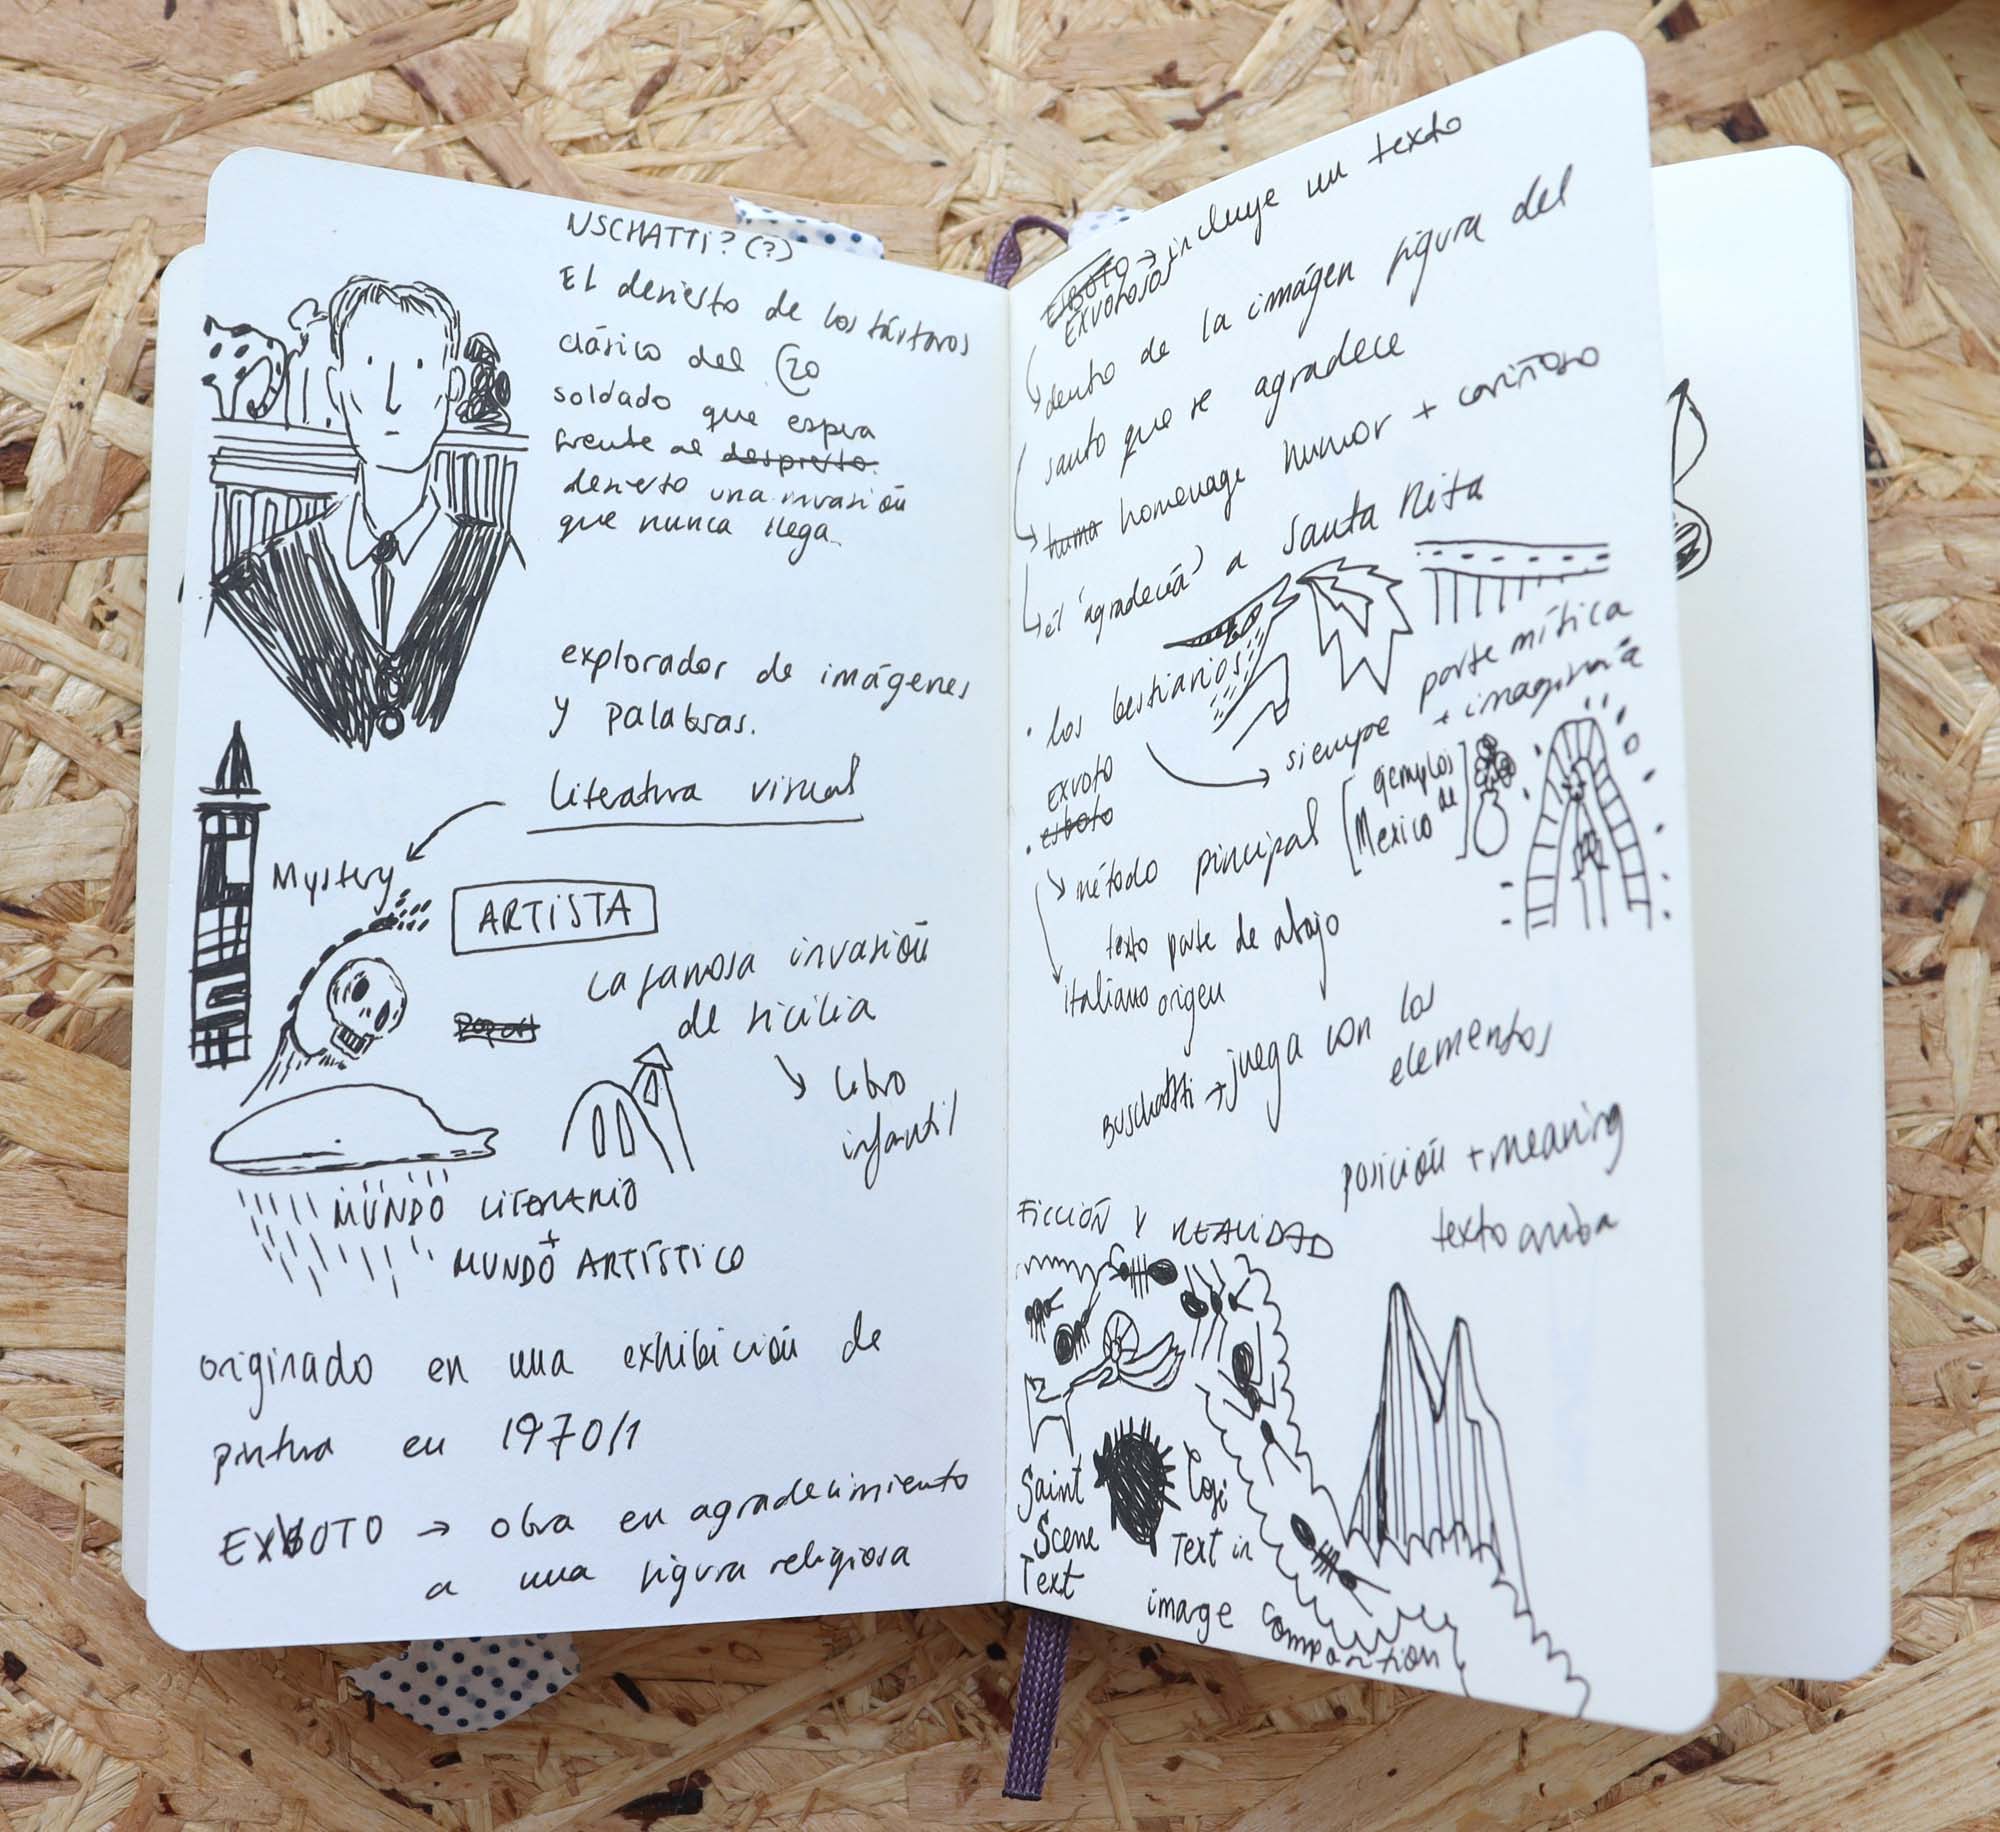 USCHATTi? (?)
El desierto de los tártaros
clásico del C20
soldado que espera
frente al despierto
desierto una invasión
que nunca llega.
explorador de imágenes
y palabras.
literatura visual
Mystery
ARTiSTA
La famosa invasión
de sicilia
libro
infantil
MUNDO LITERARIO
+
MUNDO ARTÍSTICO
originado en una exhibición de
pintura en 1970/1
EXBOTO → obra en agradecimiento
a una figura religiosa
ESBOTO → incluye un texto
EXVOTOS
dentro de la imágen figura del
santo que se agradece
huma homenage humor + cariñoso
él 'agradecía' a Santa Rita
· los bestiarios
siempre parte mítica
+ imaginaria
EXVOTO
· esboto
método principal [ejemplos de
Mexico]
texto parte de abajo
italiano origen
Buschatti → juega con los
elementos
posición + meaning
texto arriba
FICCIÓN Y REALIDAD
Saint
Scene
Text
Text in
image composition